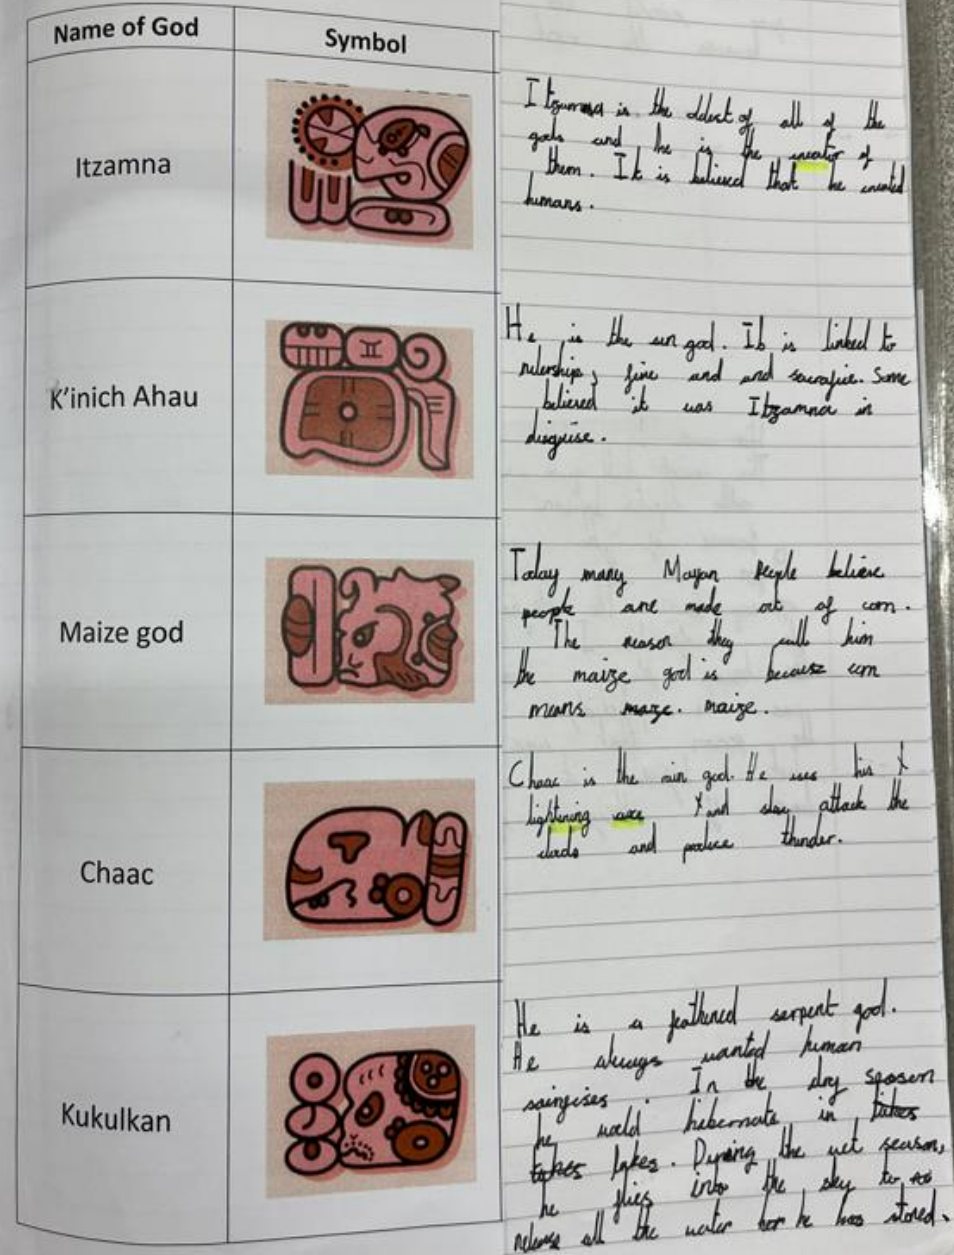 Name of God
Symbol
Itzamna
Itzamna is the oldest of all of the
gods and he is the creator of
them. It is believed that he created
humans.
K'inich Ahau
He is the sun god. It is linked to
rulership, fire and and sacrafice. Some
believed it was Itzamna in
disguise.
Maize god
Today many Mayan people believe
people are made out of corn.
The reason they call him
the maize god is because corn
means maze. maize.
Chaac
Chaac is the rain god. He uses his
lightining axe and attack the
clouds and produce thunder.
Kukulkan
He is a feathered serpent god.
He always wanted human
. In the dry
he would hibernate in takes
takes lakes. During the wet season,
he flies into the sky to
release all the water he has stored.